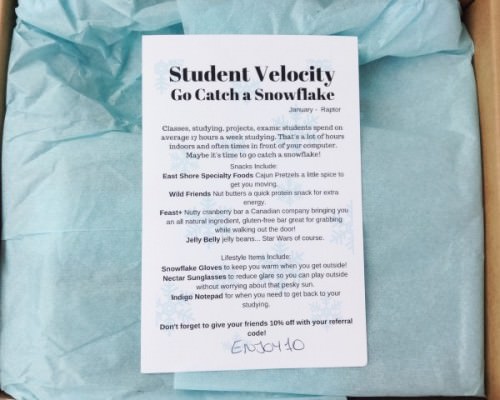 Student Velocity
Go Catch a Snowflake
January - Raptor
Classes, studying, projects, exams: students spend on
average 17 hours a week studying. That's a lot of hours
indoors and often times in front of your computer.
Maybe it's time to go catch a snowflake!
Snacks Include:
East Shore Specialty Foods Cajun Pretzels a little spice to
get you moving.
Wild Friends Nut butters a quick protein snack for extra
energy.
Feast+ Nutty cranberry bar a Canadian company bringing you
an all natural ingredient, gluten-free bar great for grabbing
while walking out the door!
Jelly Belly jelly beans... Star Wars of course.
Lifestyle Items Include:
Snowflake Gloves to keep you warm when you get outside!
Nectar Sunglasses to reduce glare so you can play outside
without worrying about that pesky sun.
Indigo Notepad for when you need to get back to your
studying.
Don't forget to give your friends 10% off with your referral
code!
ENJOY10